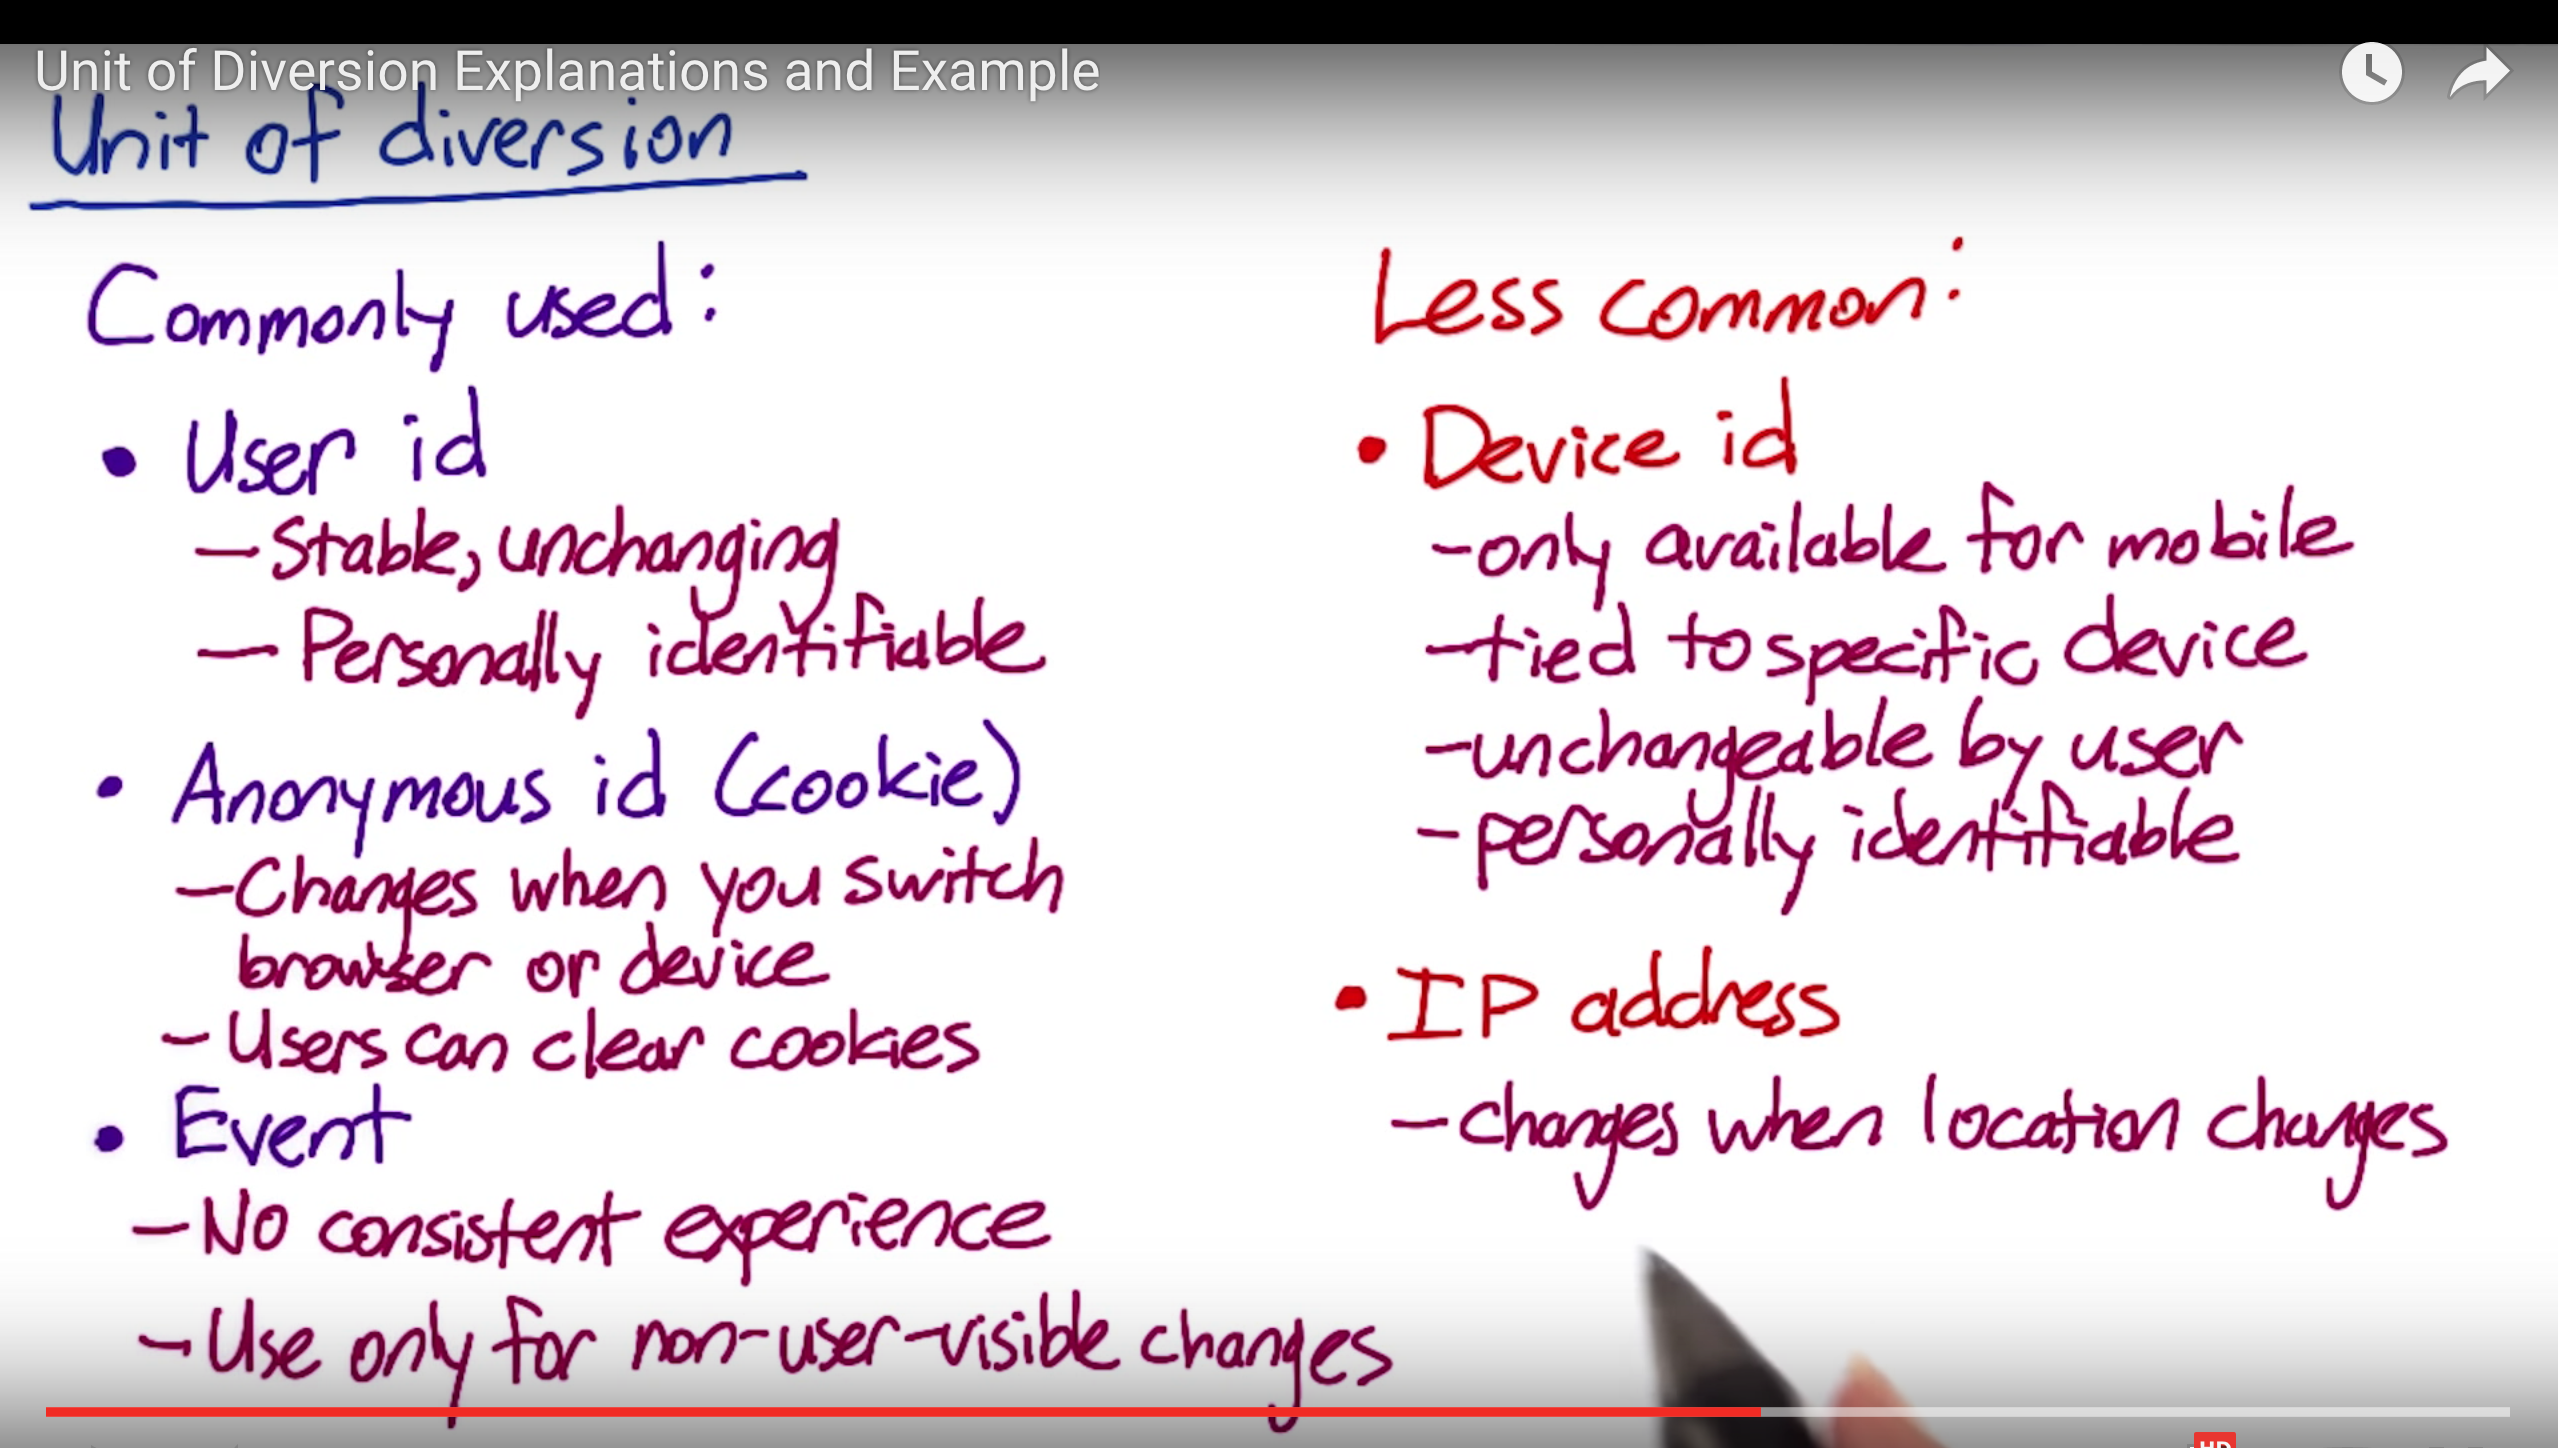 Unit of Diversion Explanations and Example
Unit of diversion
Commonly used:
• User id
— Stable, unchanging
— Personally identifiable
• Anonymous id (cookie)
— Changes when you switch
browser or device
- Users can clear cookies
• Event
— No consistent experience
- Use only for non-user-visible changes
Less common:
• Device id
- only available for mobile
- tied to specific device
- unchangeable by user
- personally identifiable
• IP address
- changes when location changes
HD